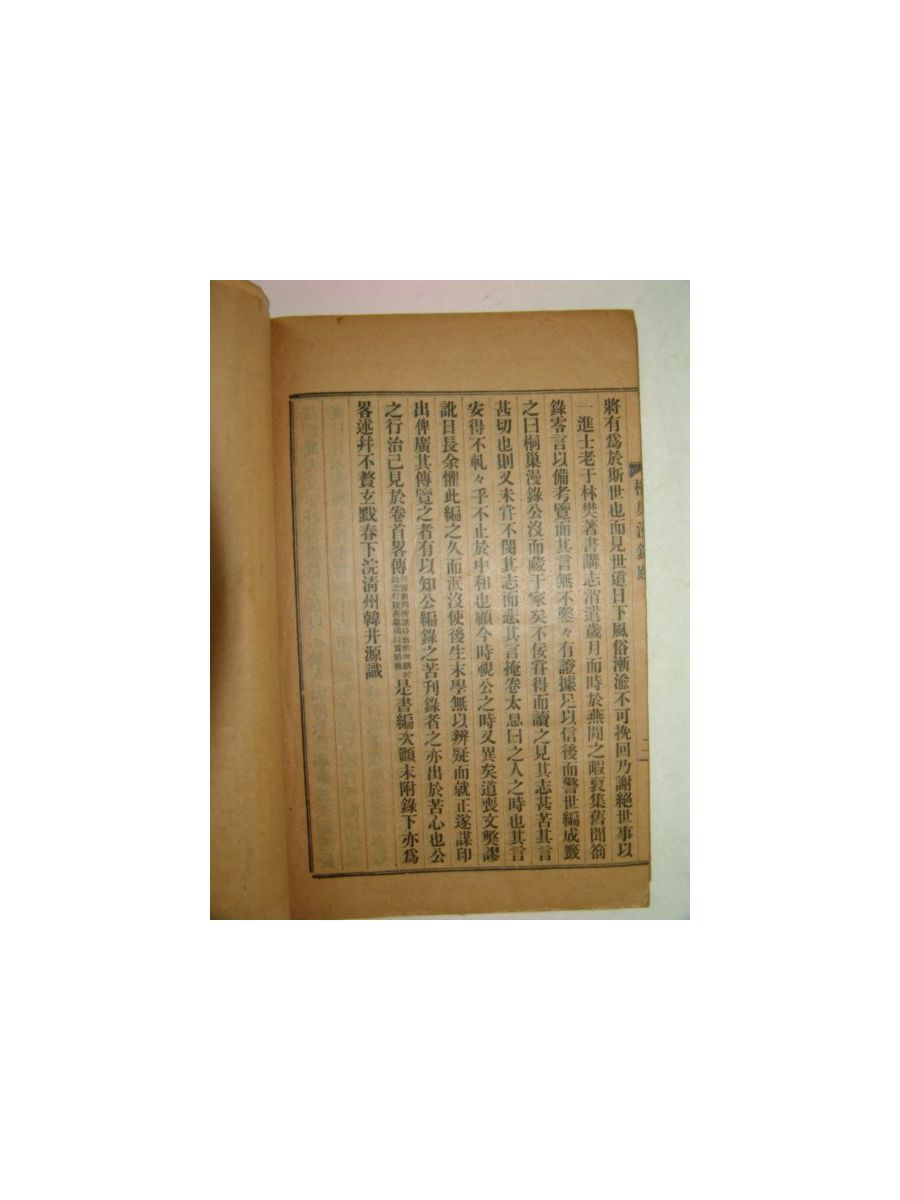 桐巢漫錄跋
二
將有爲於斯世也而見世道日下風俗漸渝不可挽回乃謝絕世事以
一進士老于林樊著書講志消遣歲月而時於燕閒之暇裒集舊聞箚
錄零言以備考覽而其言無不鑿々有證據足以信後而警世編成籤
之曰桐巢漫錄公沒而藏于家矣不佞甞得而讀之見其志甚苦其言
甚切也則又未甞不閔其志而悲其言掩卷太息曰之人之時也其言
安得不軋々乎不止於中和也顧今時視公之時又異矣道喪文弊謬
訛日長余懼此編之久而泯沒使後生末學無以辨疑而就正遂謀印
出俾廣其傳覽之者有以知公編錄之苦刊錄者之亦出於苦心也公
之行治已見於卷首畧傳是書編次顚末附錄下亦爲
畧述幷不贅玄黓春下浣淸州韓井源識